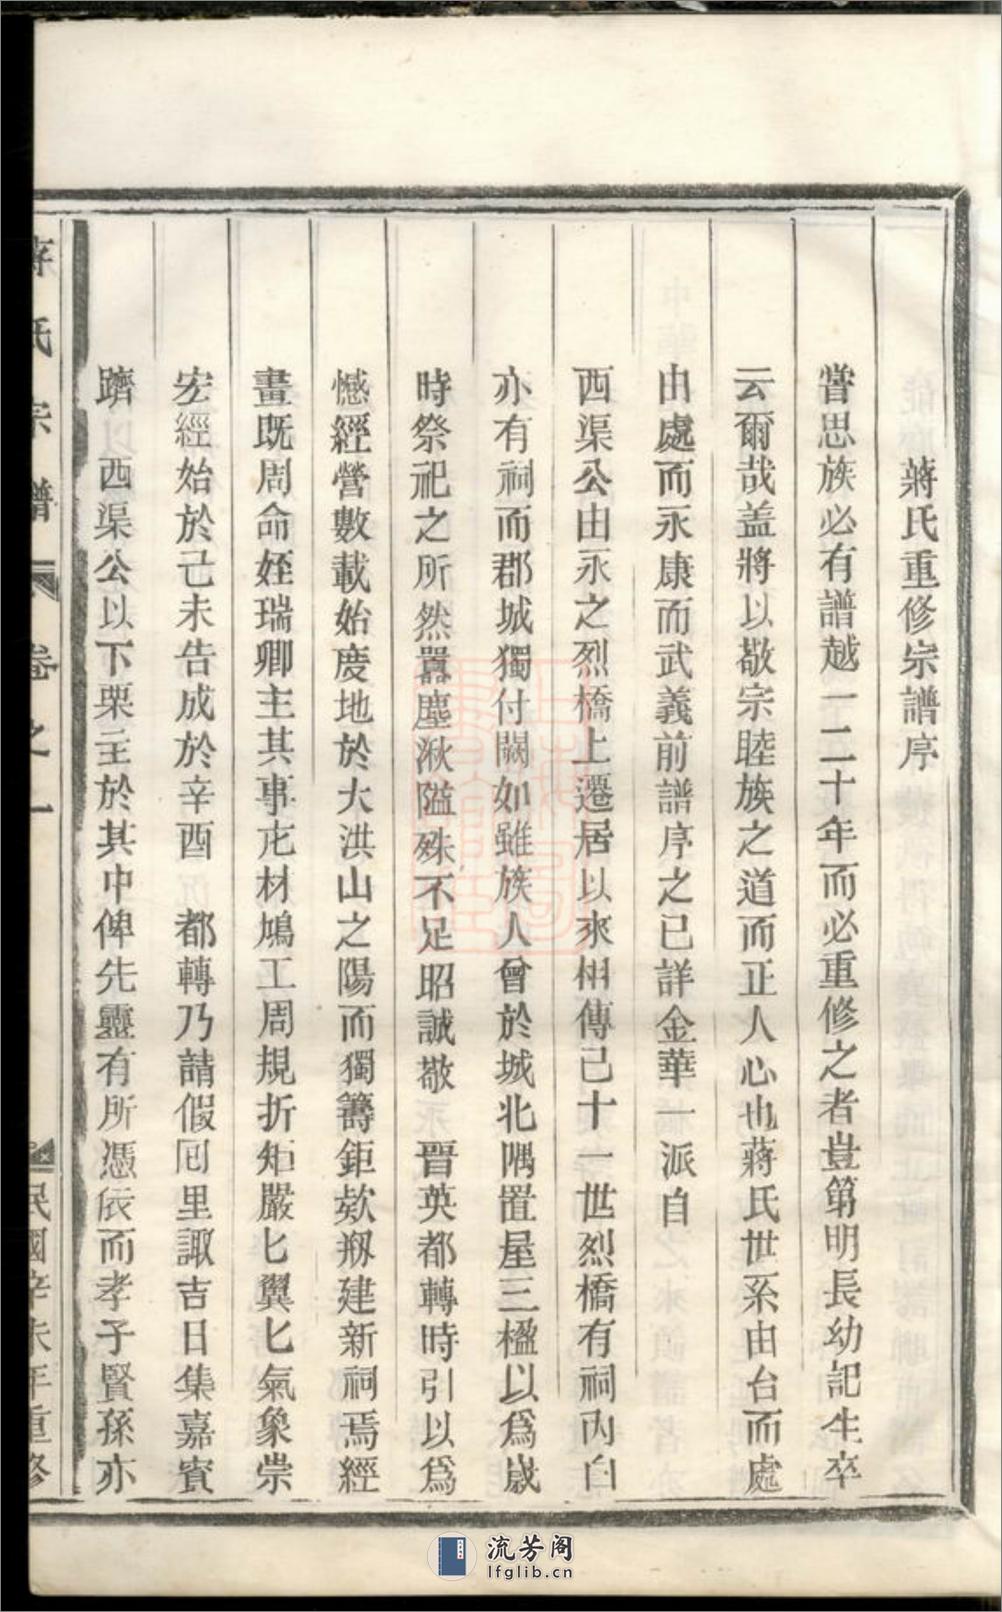 蔣氏重修宗譜序
嘗思族必有譜越一二十年而必重修之者豈第明長幼記生卒
云爾哉盖將以敬宗睦族之道而正人心也蔣氏世系由台而處
由處而永康而武義前譜序之已詳金華一派自
西渠公由永之烈橋上遷居以來相傳己十一世烈橋有祠內白
亦有祠而郡城獨付闕如雖族人曾於城北隅置屋三楹以爲歲
時祭祀之所然嚣塵湫隘殊不足昭誠敬 晋英都轉時引以爲
憾經營數載始度地於大洪山之陽而獨籌鉅欵剏建新祠焉經
畫既周命姪瑞卿主其事庀材鳩工周規折矩嚴匕翼匕氣象崇
宏經始於己未告成於辛酉 都轉乃請假囘里諏吉日集嘉賓
躋 西渠公以下栗主於其中俾先靈有所憑依而孝子賢孫亦
蔣氏宗譜 卷之一 民國辛未年重修
流芳阁
lfglib.cn